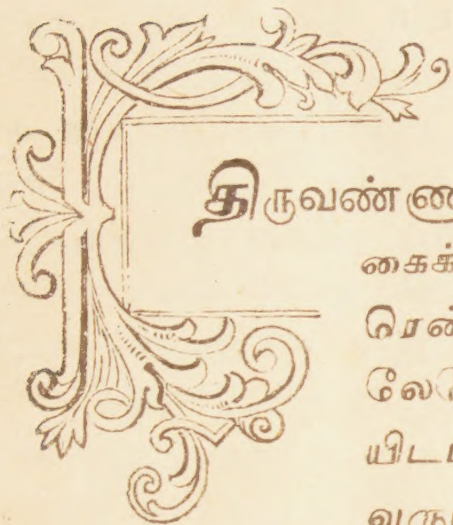 திருவண்ணு
கைக்
ரெண்
லே
யிட
வரு